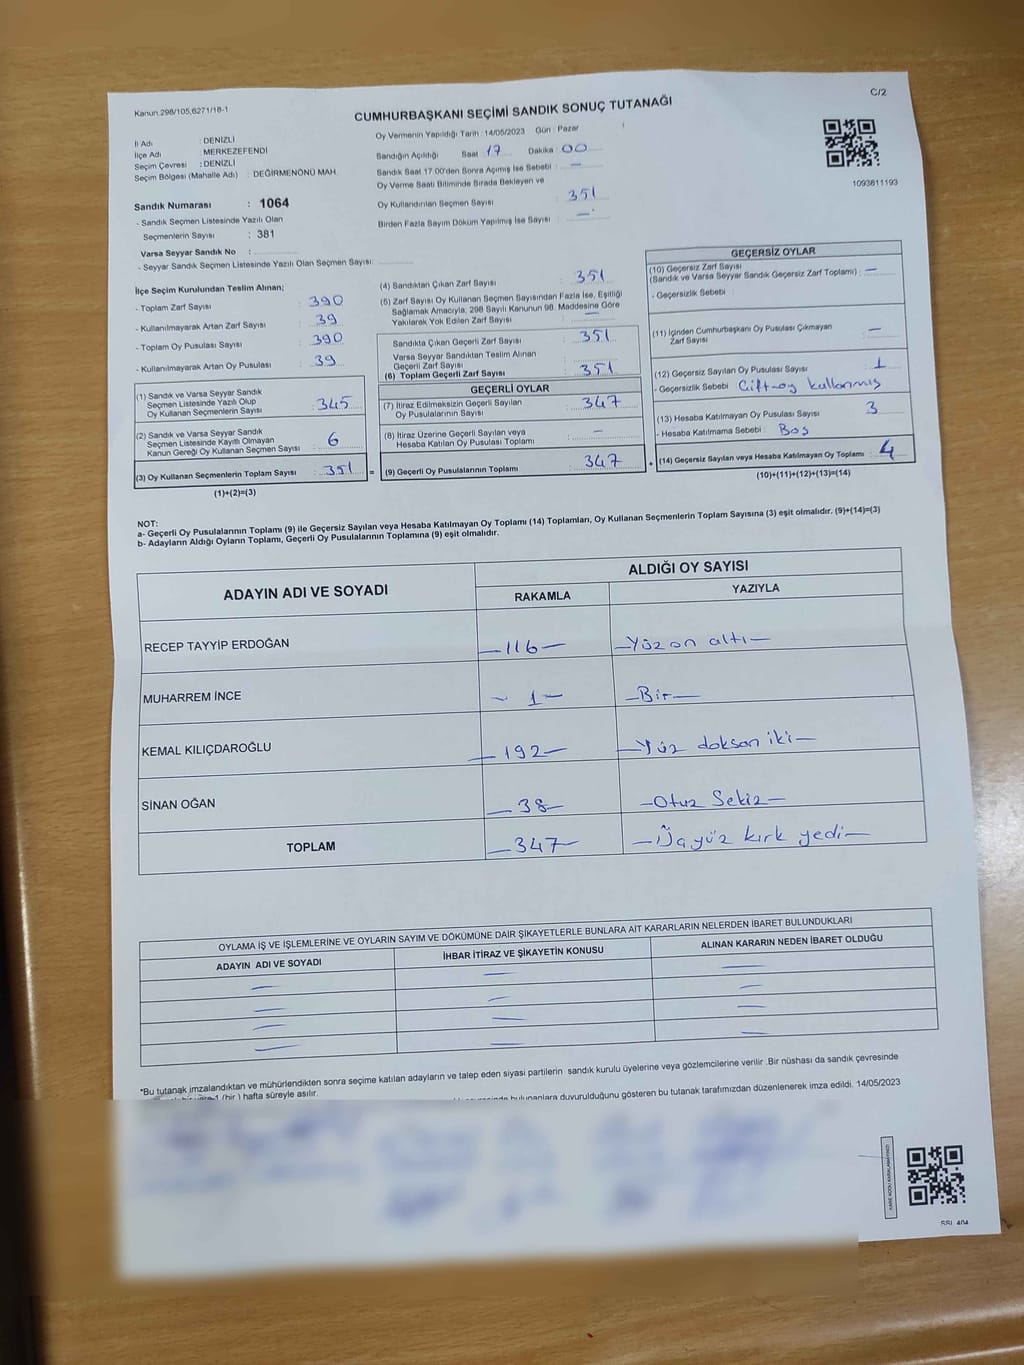 Kanun.298/105,6271/18-1
C/2
CUMHURBAŞKANI SEÇİMİ SANDIK SONUÇ TUTANAĞI
İl Adı : DENİZLİ
İlçe Adı : MERKEZEFENDİ
Seçim Çevresi : DENİZLİ
Seçim Bölgesi (Mahalle Adı) : DEĞİRMENÖNÜ MAH.
Sandık Numarası : 1064
- Sandık Seçmen Listesinde Yazılı Olan
Seçmenlerin Sayısı : 381
Varsa Seyyar Sandık No :
- Seyyar Sandık Seçmen Listesinde Yazılı Olan Seçmen Sayısı:
Oy Vermenin Yapıldığı Tarih : 14/05/2023 Gün : Pazar
Sandığın Açıldığı Saat 17 Dakika : 00
Sandık Saat 17.00'den Sonra Açımış İse Sebebi : —
Oy Verme Saati Bitiminde Sırada Bekleyen ve
Oy Kullandırılan Seçmen Sayısı : 351
Birden Fazla Sayım Döküm Yapılmış İse Sayısı : —
1093811193
İlçe Seçim Kurulundan Teslim Alınan;
- Toplam Zarf Sayısı : 390
- Kullanılmayarak Artan Zarf Sayısı : 39
- Toplam Oy Pusulası Sayısı : 390
- Kullanılmayarak Artan Oy Pusulası : 39
(1) Sandık ve Varsa Seyyar Sandık
Seçmen Listesinde Yazılı Olup
Oy Kullanan Seçmenlerin Sayısı : 345
(2) Sandık ve Varsa Seyyar Sandık
Seçmen Listesinde Kayıtlı Olmayan
Kanun Gereği Oy Kullanan Seçmen Sayısı : 6
(3) Oy Kullanan Seçmenlerin Toplam Sayısı : 351 =
(1)+(2)=(3)
(4) Sandıktan Çıkan Zarf Sayısı : 351
(5) Zarf Sayısı Oy Kullanan Seçmen Sayısından Fazla İse, Eşitliği
Sağlamak Amacıyla; 298 Sayılı Kanunun 98. Maddesine Göre
Yakılarak Yok Edilen Zarf Sayısı : —
Sandıkta Çıkan Geçerli Zarf Sayısı : 351
Varsa Seyyar Sandıktan Teslim Alınan
Geçerli Zarf Sayısı
(6) Toplam Geçerli Zarf Sayısı : 351
GEÇERLİ OYLAR
(7) İtiraz Edilmeksizin Geçerli Sayılan
Oy Pusulalarının Sayısı : 347
(8) İtiraz Üzerine Geçerli Sayılan veya
Hesaba Katılan Oy Pusulası Toplamı : —
(9) Geçerli Oy Pusulalarının Toplamı : 347 +
GEÇERSİZ OYLAR
(10) Geçersiz Zarf Sayısı
(Sandık ve Varsa Seyyar Sandık Geçersiz Zarf Toplamı) : —
- Geçersizlik Sebebi :
(11) İçinden Cumhurbaşkanı Oy Pusulası Çıkmayan
Zarf Sayısı : —
(12) Geçersiz Sayılan Oy Pusulası Sayısı : 1
- Geçersizlik Sebebi : Çift oy kullanmış
(13) Hesaba Katılmayan Oy Pusulası Sayısı : 3
- Hesaba Katılmama Sebebi : Boş
(14) Geçersiz Sayılan veya Hesaba Katılmayan Oy Toplamı : 4
(10)+(11)+(12)+(13)=(14)
NOT:
a- Geçerli Oy Pusulalarının Toplamı (9) ile Geçersiz Sayılan veya Hesaba Katılmayan Oy Toplamı (14) Toplamları, Oy Kullanan Seçmenlerin Toplam Sayısına (3) eşit olmalıdır. (9)+(14)=(3)
b- Adayların Aldığı Oyların Toplamı, Geçerli Oy Pusulalarının Toplamına (9) eşit olmalıdır.
ADAYIN ADI VE SOYADI
ALDIĞI OY SAYISI
RAKAMLA YAZIYLA
RECEP TAYYİP ERDOĞAN —116— —Yüz on altı—
MUHARREM İNCE — 1 — —Bir—
KEMAL KILIÇDAROĞLU —192— —Yüz doksan iki—
SİNAN OĞAN —38— —Otuz Sekiz—
TOPLAM —347— —Üçyüz kırk yedi—
OYLAMA İŞ VE İŞLEMLERİNE VE OYLARIN SAYIM VE DÖKÜMÜNE DAİR ŞİKAYETLERLE BUNLARA AİT KARARLARIN NELERDEN İBARET BULUNDUKLARI
ADAYIN ADI VE SOYADI İHBAR İTİRAZ VE ŞİKAYETİN KONUSU ALINAN KARARIN NEDEN İBARET OLDUĞU
*Bu tutanak imzalandıktan ve mühürlendikten sonra seçime katılan adayların ve talep eden siyasi partilerin sandık kurulu üyelerine veya gözlemcilerine verilir .Bir nüshası da sandık çevresinde
1 (bir ) hafta süreyle asılır.
bulunanlara duyurulduğunu gösteren bu tutanak tarafımızdan düzenlenerek imza edildi. 14/05/2023